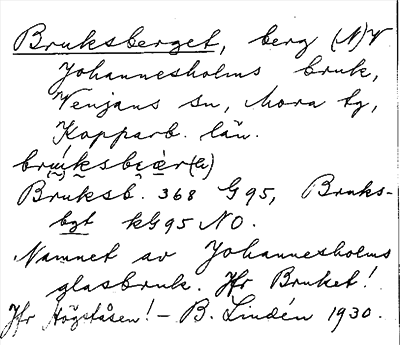 Bruksberget, berg (N)V
Johannesholms bruk,
Venjans sn, Mora tg,
Kopparb. län.
Bruksb. 368 G95, Bruks-
bgt kG95 NO.
Namnet av Johannesholms
glasbruk. Jfr Bruket!
Jfr Högståsen! – B. Lindén 1930.